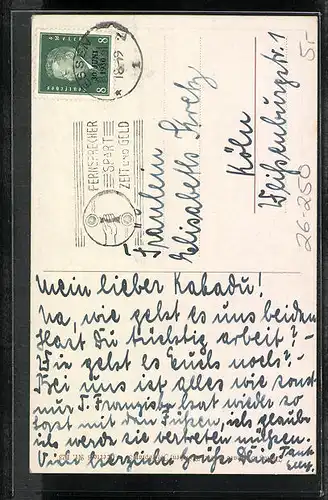 Deutsches Reich
8 8
30. JUNI
1930
ESSEN
18-19
FERNSPRECHER
SPART
ZEIT UND GELD
Fräulein
Elisabeth
Köln
Weißenburgstr. 1
5,-
26-250
Mein lieber Kakadu!
Na, wie geht es uns beiden
Hast Du tüchtig arbeit? -
Wie geht es Euch noch? -
Bei uns ist alles wie sonst
nur T. Franziska hat wieder so
Last mit den Füßen, ich glaube
ich werde sie vertreten müssen.
Viele herzliche Grüße Deine Tante
Elly.